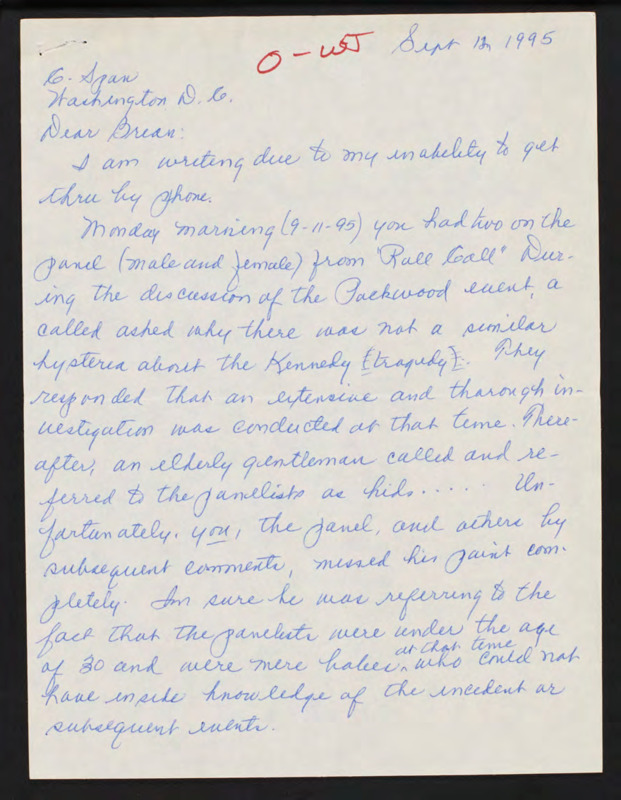 O - WJ
Sept 12, 1995
C. Span
Washington D. C.
Dear Brian:
I am writing due to my inability to get
thru by phone.
Monday morning (9-11-95) you had two on the
panel (male and female) from "Roll Call" Dur-
ing the discussion of the Packwood event, a
called asked why there was not a similar
hysteria about the Kennedy [tragedy]. They
responded that an extensive and thorough in-
vestigation was conducted at that time. There-
after, an elderly gentleman called and re-
ferred to the panelists as kids..... Un-
fortunately, you, the panel, and others by
subsequent comments, missed his point com-
pletely. Im sure he was referring to the
fact that the panelists were under the age
at that time
of 30 and were mere babies who could not
have inside knowledge of the incident or
subsequent events.